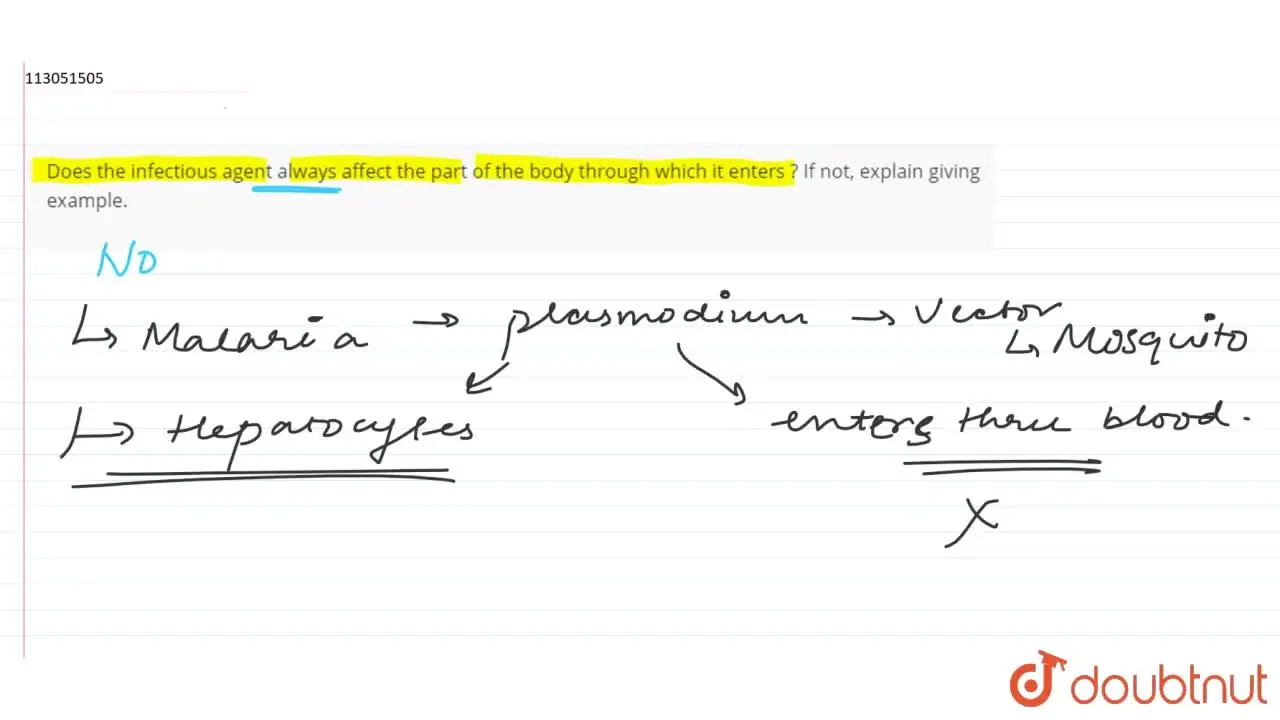 113051505
Does the infectious agent always affect the part of the body through which it enters ? If not, explain giving
example.
No
↳ Malaria → plasmodium → Vector
↳ Mosquito
↳ Hepatocytes
enters thru blood.
X
doubtnut